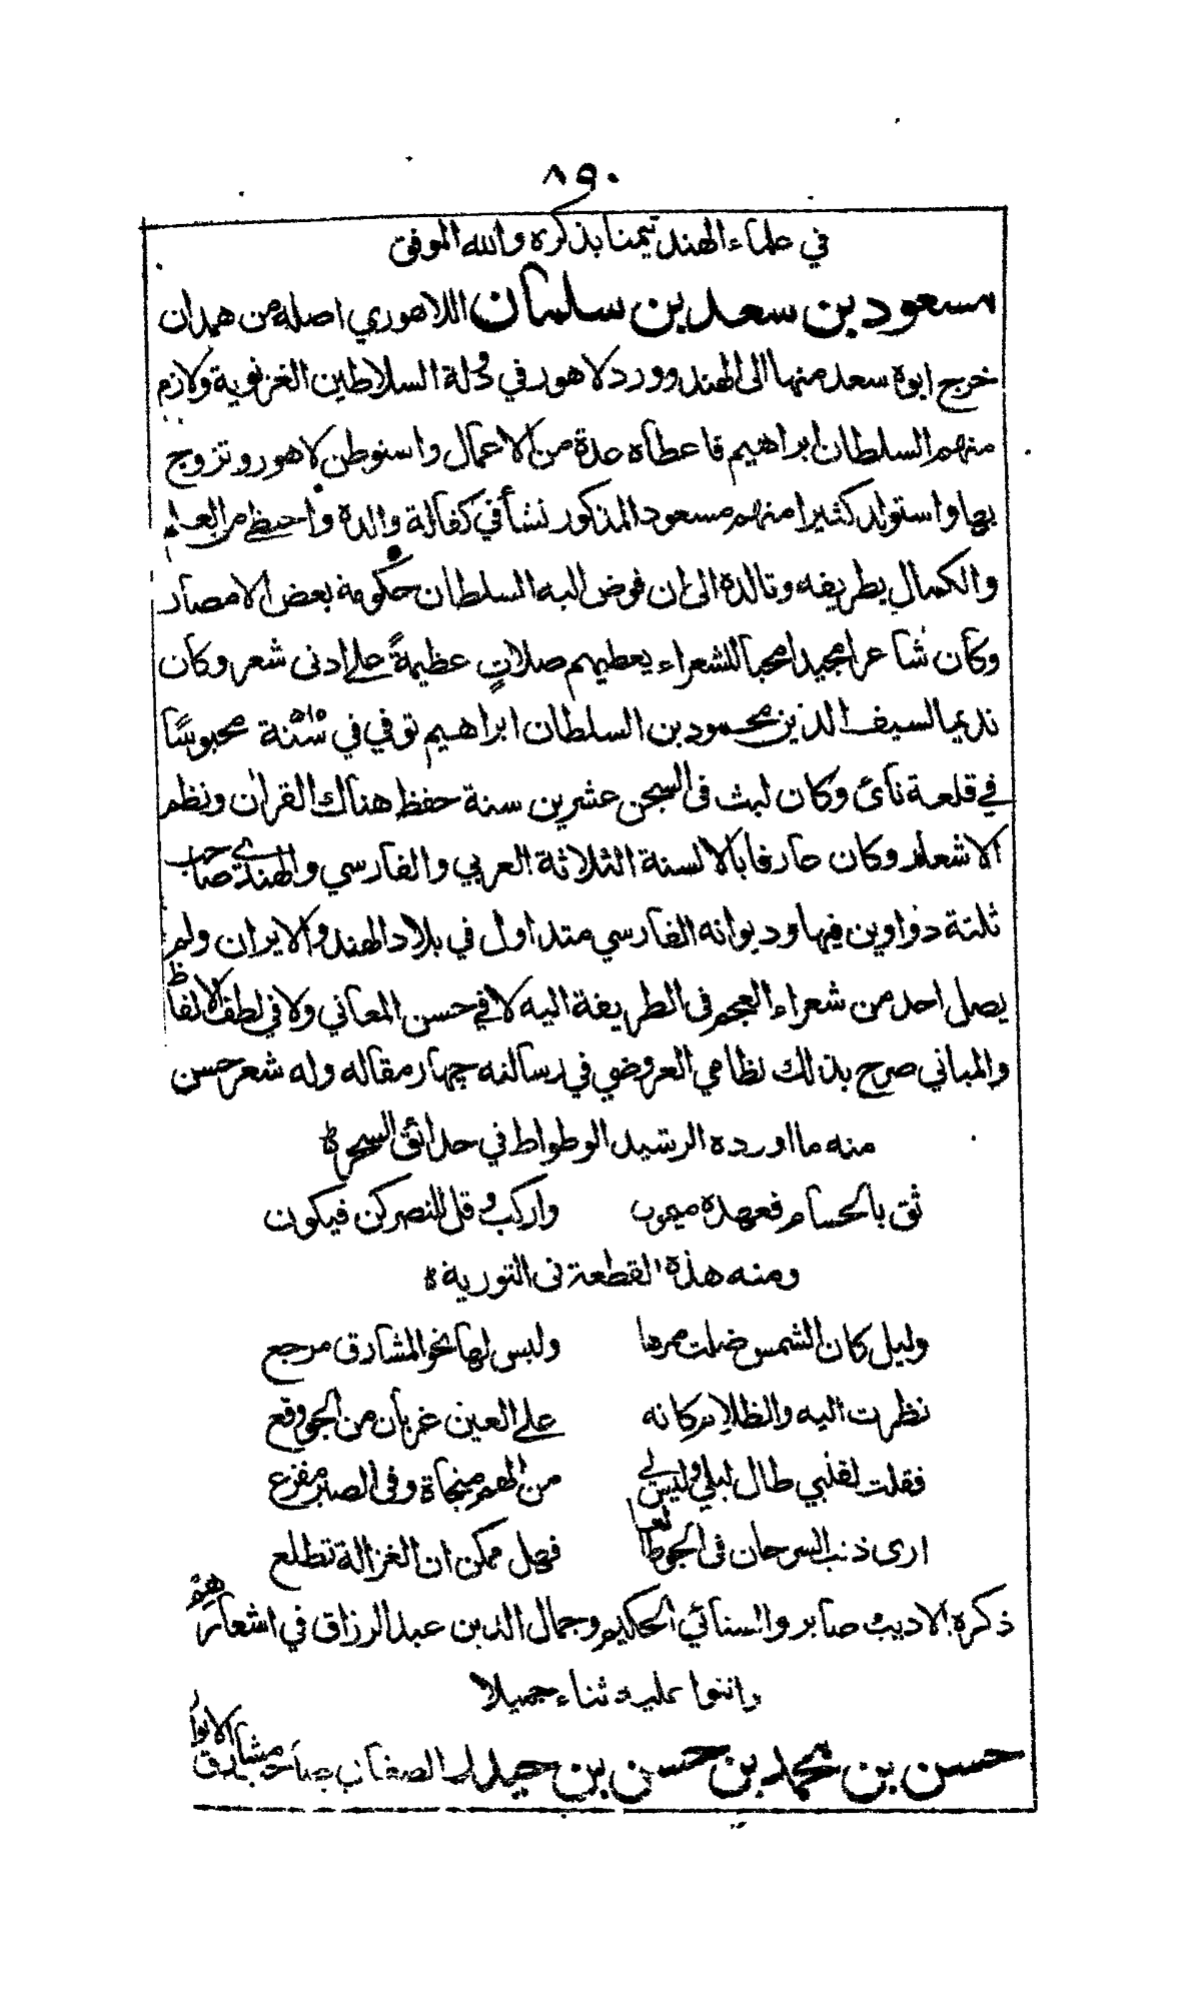 ٨٩٠
في علماء الهند تيمنا بذكره والله الموفق
مسعود بن سعد بن سلمان اللاهوري اصله من همدان
خرج ابوه سعد منها الى الهند وورد لاهور في دولة السلاطين الغزنوية ولازم
منهم السلطان ابراهيم فاعطاه عدة من الاعمال واستوطن لاهور وتزوج
بها واستولد كثيرا منهم مسعود المذكور نشأ في كفالة والده واحتظ من العلم
والكمال بطريفه وتالده الى ان فوض اليه السلطان حكومة بعض الامصار
وكان شاعرا مجيدا محبا للشعراء يعطيهم صلاتٍ عظيمةً على ادنى شعر وكان
نديما لسيف الدين محمود بن السلطان ابراهيم توفي في سنة ٥١٥ محبوسًا
في قلعة نائ وكان لبث في السجن عشرين سنة حفظ هناك القران ونظم
الاشعار وكان عارفا بالالسنة الثلاثة العربي والفارسي والهندي صاحب
ثلثة دواوين فيها وديوانه الفارسي متداول في بلاد الهند والايران ولم
يصل احد من شعراء العجم في الطريقة اليه لا في حسن المعاني ولا في لطف الالفاظ
والمباني صرح بذلك نظامي العروضي في رسالته چهار مقاله وله شعر حسن
منه ما اورده الرشيد الوطواط في حدائق السحر
ثق بالحسام فعهده ميمون واركب وقل للنصر كن فيكون
ومنه هذه القطعة في التورية
وليل كان الشمس ضلت ممرها وليس لها نحو المشارق مرجع
نظرت اليه والظلام كانه على العين غربان من الجو وقع
فقلت لقلبي طال ليلي وليس لي من الهم منجاة وفي الصبر مفزع
ارى ذنب السرحان في الجو طالعا فهل ممكن ان الغزالة تطلع
ذكره الاديب صابر والسنائي الحكيم وجمال الدين عبد الرزاق في اشعارهم
واثنوا عليه ثناء جميلا
حسن بن محمد بن حسن بن حيدر الصغاني صاحب مشارق الانوار